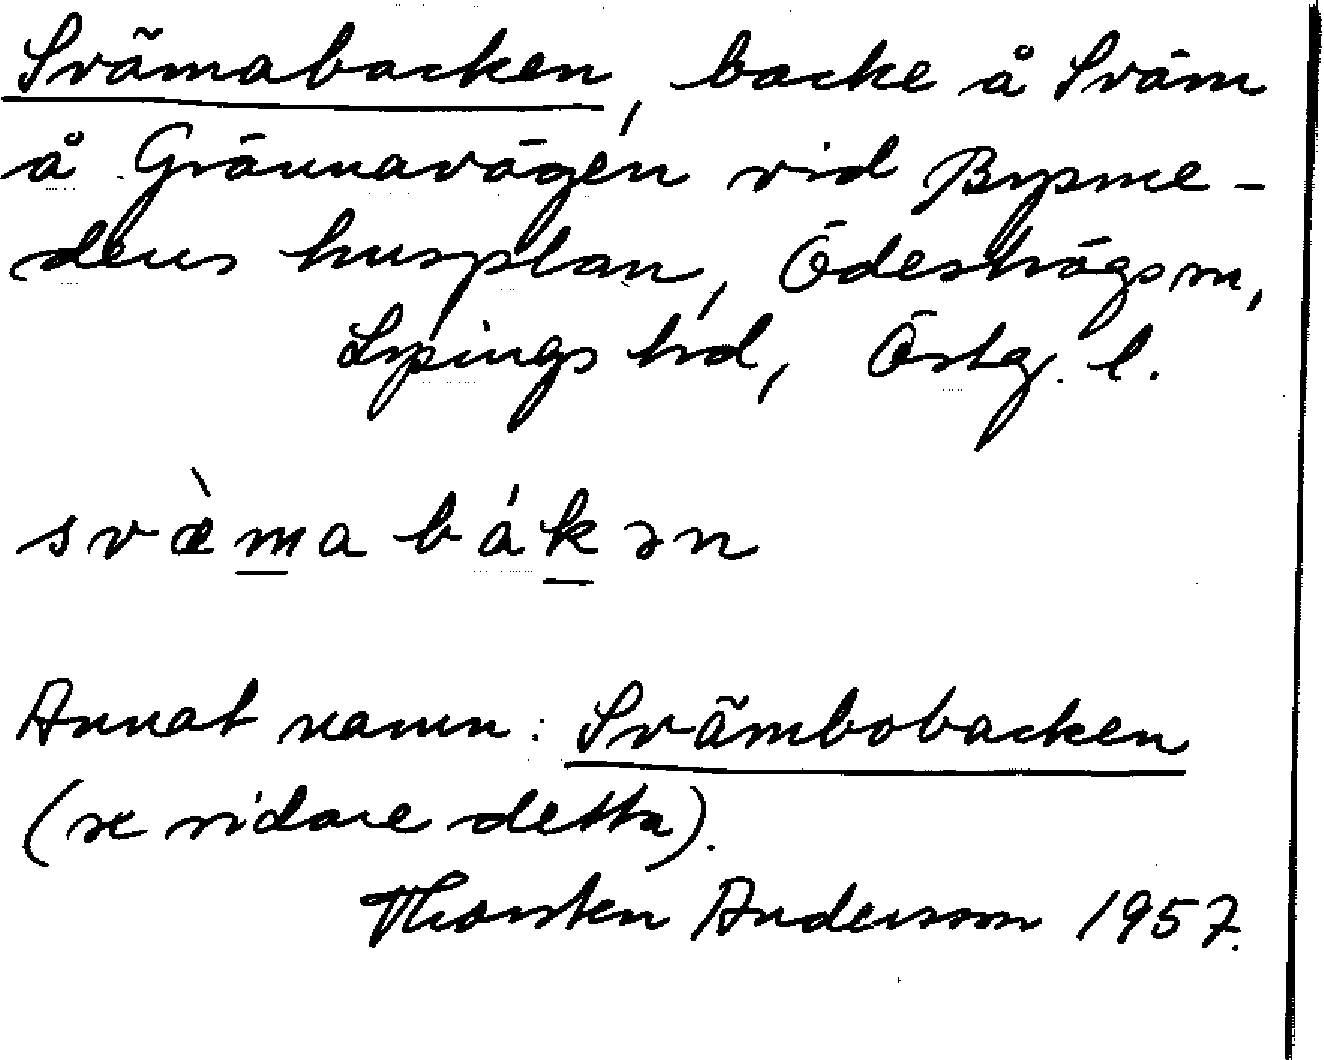 Svämabacken, backe å Sväm
å Grännavägen vid Bysme-
dens husplan, Ödeshögs sn,
Lysings hd, Östg. l.
svæ̀mabákən
Annat namn: Svämbobacken
(se vidare detta).
Thorsten Andersson 1957.